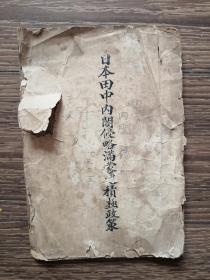 日本田中內閣侵略滿蒙之積極政策